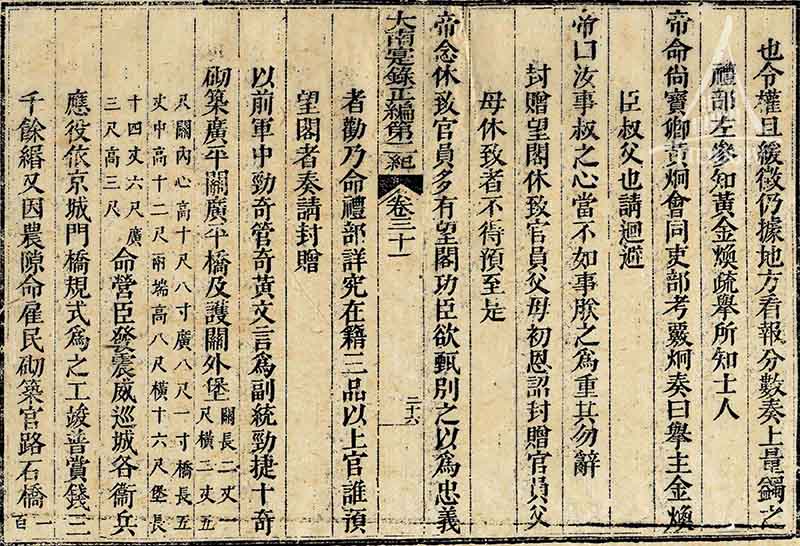 也令權且緩徵仍據地方看報分數奏上量蠲之
禮部左參知黃金煥疏舉所知士人
帝命尙寶卿黃炯會同吏部考覈炯奏曰舉主金煥
臣叔父也請迴避
帝曰汝事叔之心當不如事朕之爲重其勿辭
封贈望閣休致官員父母初恩詔封贈官員父
母休致者不得預至是
帝念休致官員多有望閣功臣欲甄別之以爲忠義
大南寔錄正編第二紀
卷三十一
二十六
者勸乃命禮部詳究在籍三品以上官誰預
望閣者奏請封贈
以前軍中勁奇管奇黃文言爲副統勁捷十奇
砌築廣平關廣平橋及護關外堡關長二丈一尺橫三丈五
尺關內心高十尺八寸廣八尺一寸橋長五
丈中高十二尺兩端高八尺橫十六尺堡長
十四丈六尺廣三尺高三尺命營臣發震威巡城各衞兵
應役依京城門橋規式爲之工竣普賞錢三
千餘緡又因農隙命雇民砌築官路石橋一百